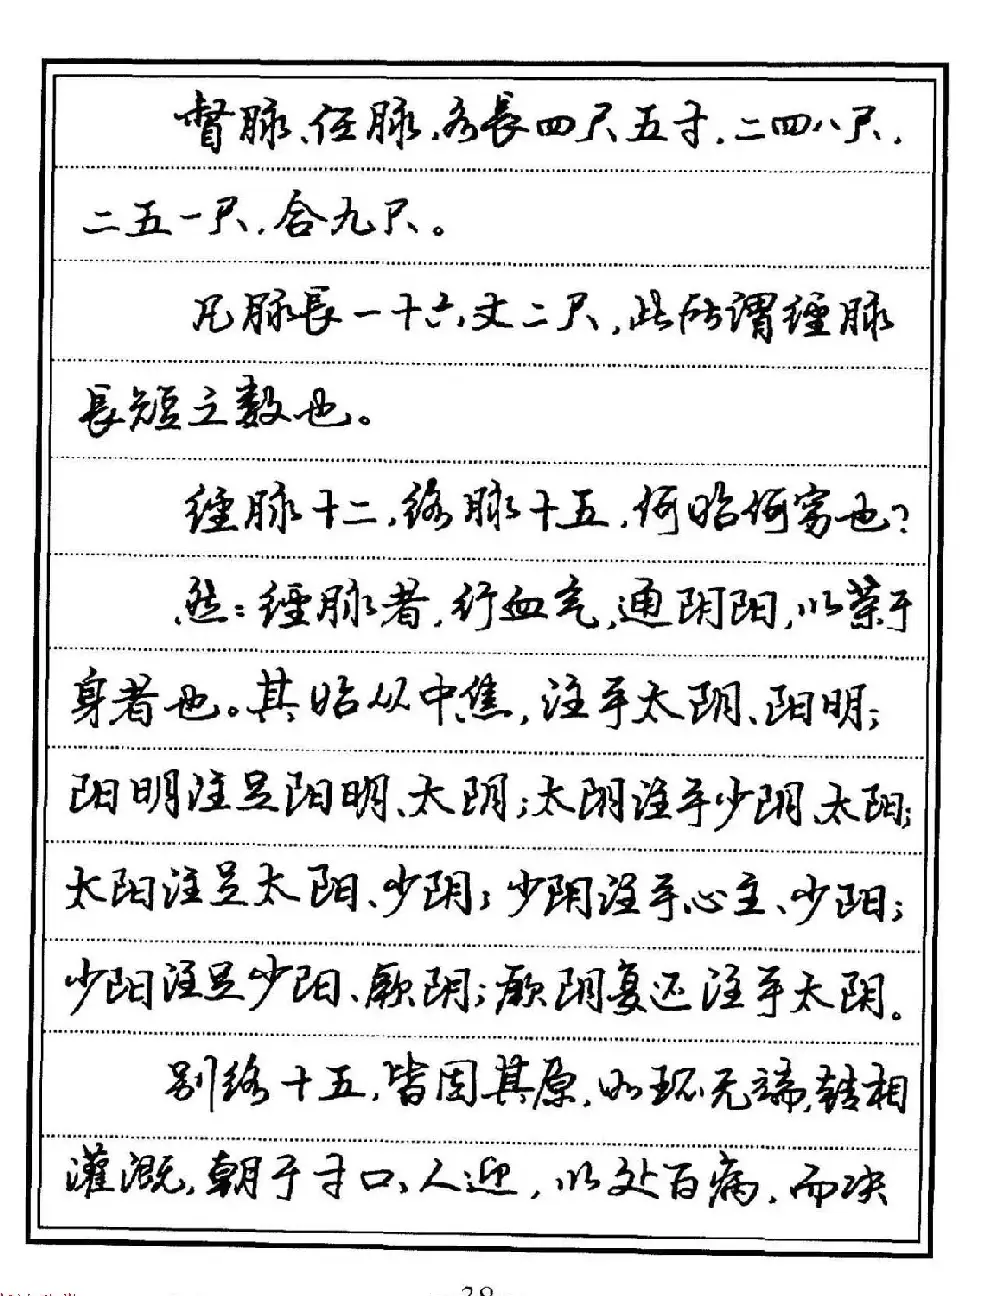 督脉、任脉,各長四尺五寸,二四八尺,
二五一尺,合九尺。
凡脉長一十六丈二尺,此所謂經脉
長短之數也。
經脉十二,络脉十五,何始何窮也?
然:經脉者,行血气,通阴阳,以荣于
身者也。其始从中焦,注手太阴、阳明;
阳明注足阳明、太阴;太阴注手少阴、太阳;
太阳注足太阳、少阴;少阴注手心主、少阳;
少阳注足少阳、厥阴;厥阴复还注手太阴。
别络十五,皆因其原,如环无端,转相
灌溉,朝于寸口、人迎,以处百病,而决